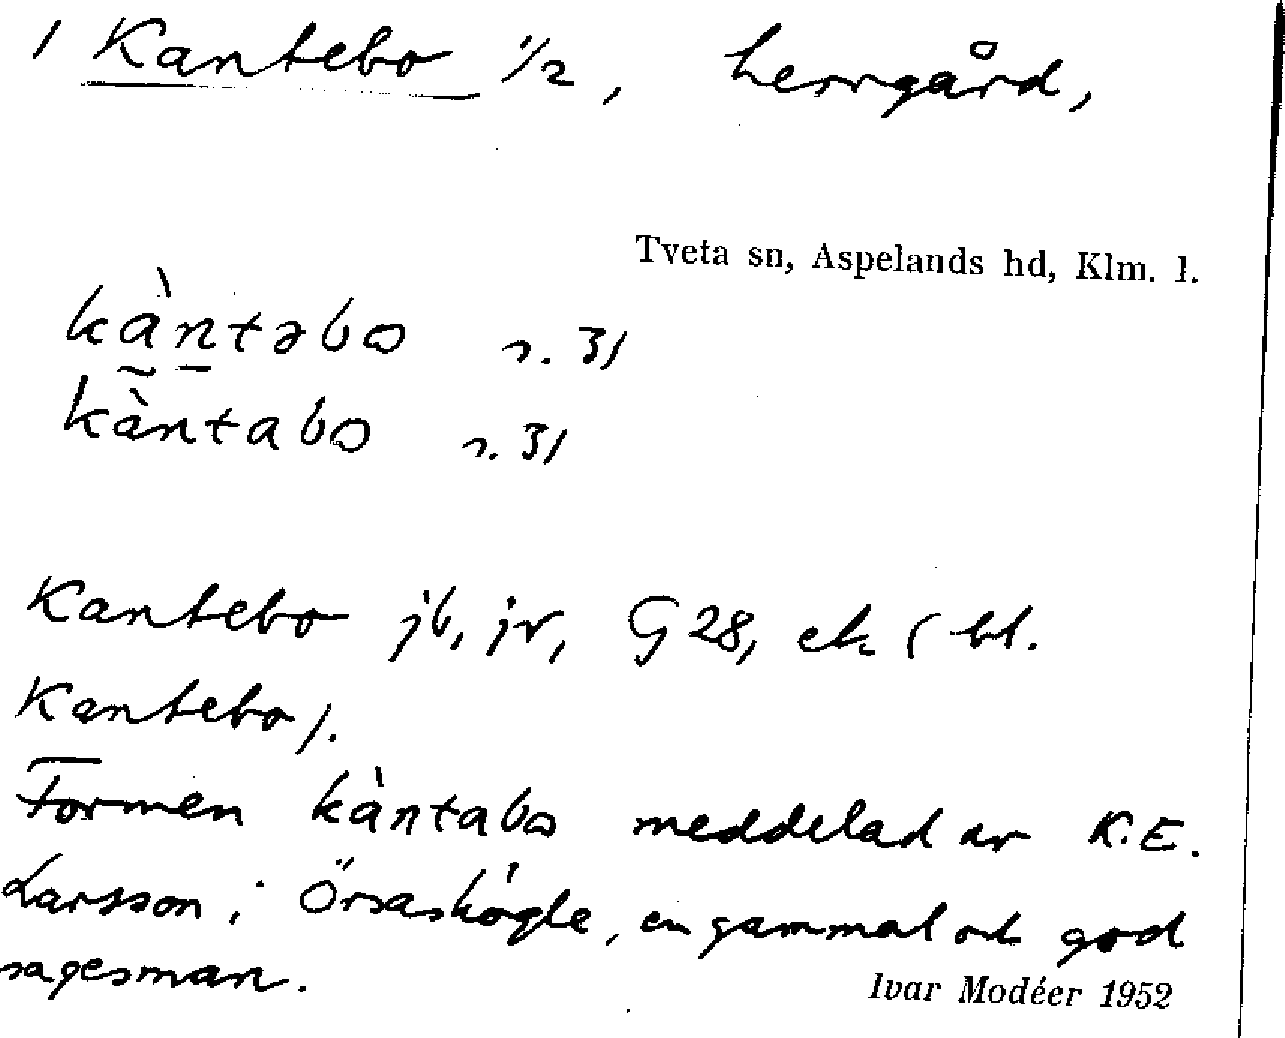 1 Kantebo 1/2, herrgård,
Tveta sn, Aspelands hd, Klm. l.
kàntəbo s. 31
kàntabo s. 31
Kantebo jb, jr, G 28, ek (bl.
Kantebo).
Formen kàntabo meddelad av K.E.
Larsson i Örsaskögle, en gammal och god
sagesman.
Ivar Modéer 1952